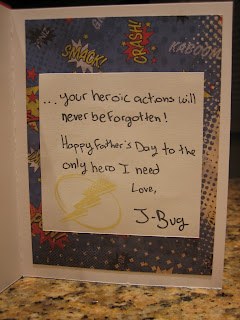 SMACK!
CRASH!
KABOOM
... your heroic actions will
never be forgotten!
Happy Father's Day to the
only hero I need
Love,
J-Bug